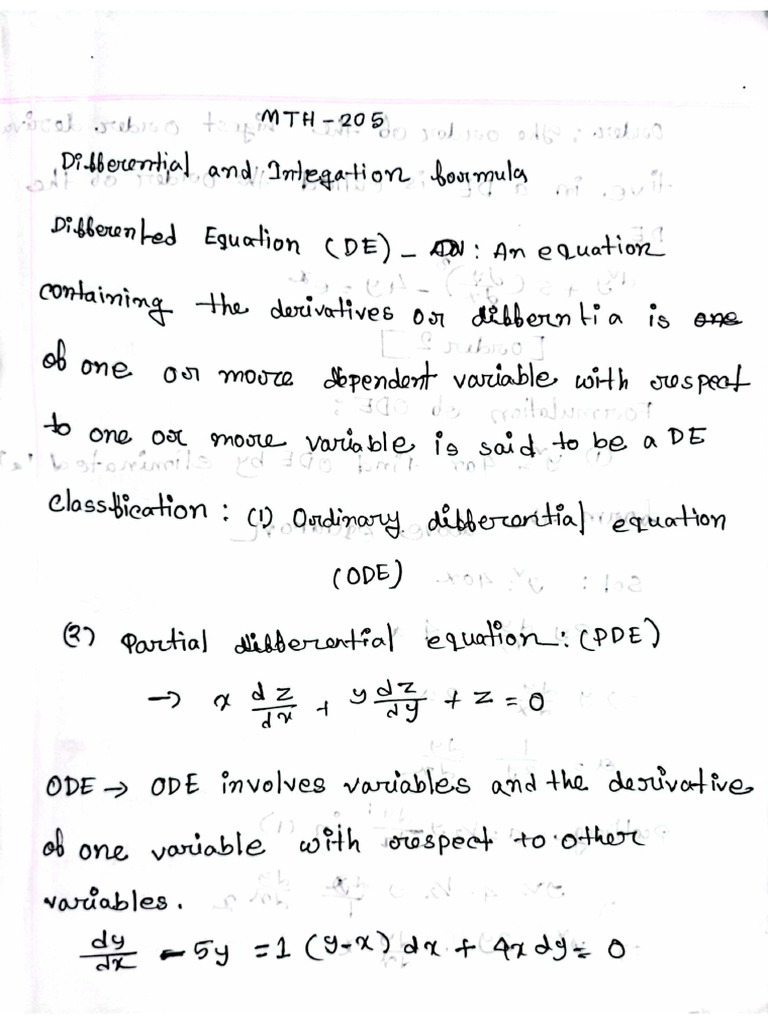 MTH-205
Differential and Integation formula
Differented Equation (DE) - : An equation
containing the derivatives or differntia is one
of one or more dependent variable with respect
to one or more variable is said to be a DE
Classfication : (1) Ordinary differential equation
(ODE)
(2) Partial differential equation : (PDE)
→ x dz/dx + y dz/dy + z = 0
ODE → ODE involves variables and the derivative
of one variable with respect to other
variables.
dy/dx - 5y = 1 (y-x) dx + 4x dy = 0